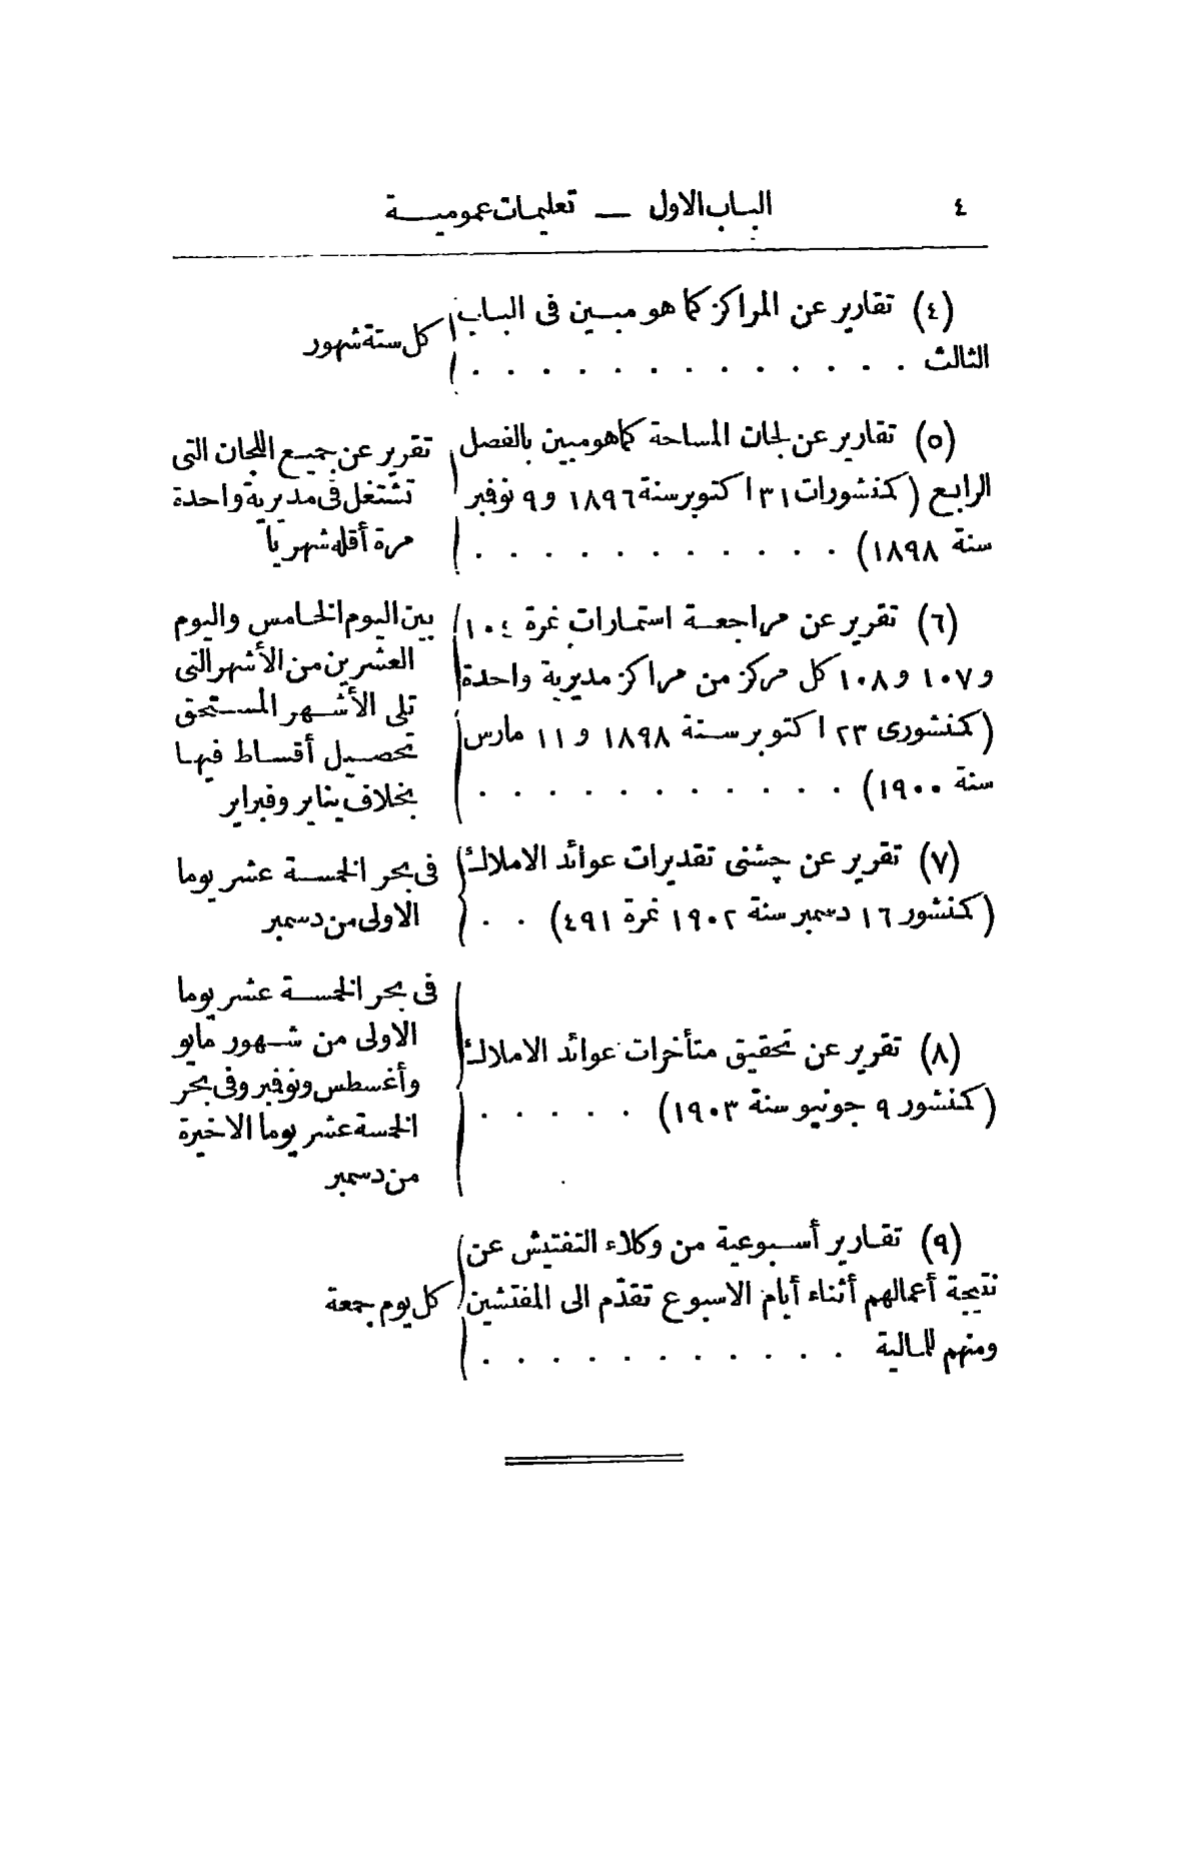 ٤
الباب الاول — تعليمات عمومية
(٤) تقارير عن المراكز كما هو مبين فى الباب
الثالث . . . . . . . . . . . . .
كل ستة شهور
(٥) تقارير عن لجان المساحة كما هو مبين بالفصل
الرابع (كمنشورات ٣١ اكتوبر سنة ١٨٩٦ و ٩ نوفمبر
سنة ١٨٩٨) . . . . . . . . . . .
تقرير عن جميع اللجان التى
تشتغل فى مديرية واحدة
مرة أقله شهريا
(٦) تقرير عن مراجعة استمارات نمرة ١٠٤
و ١٠٧ و ١٠٨ كل مركز من مراكز مديرية واحدة
(كمنشورى ٢٣ اكتوبر سنة ١٨٩٨ و ١١ مارس
سنة ١٩٠٠) . . . . . . . . . . .
بين اليوم الخامس واليوم
العشرين من الأشهر التى
تلى الأشهر المستحق
تحصيل أقساط فيها
بخلاف يناير وفبراير
(٧) تقرير عن چشنى تقديرات عوائد الاملاك
(كمنشور ١٦ دسمبر سنة ١٩٠٢ نمرة ٤٩١) . .
فى بحر الخمسة عشر يوما
الاولى من دسمبر
(٨) تقرير عن تحقيق متأخرات عوائد الاملاك
(كمنشور ٩ جونيو سنة ١٩٠٣) . . . . .
فى بحر الخمسة عشر يوما
الاولى من شهور مايو
وأغسطس ونوفمبر وفى بحر
الخمسة عشر يوما الاخيرة
من دسمبر
(٩) تقارير أسبوعية من وكلاء التفتيش عن
نتيجة أعمالهم أثناء أيام الاسبوع تقدّم الى المفتشين
ومنهم للمالية . . . . . . . . . . .
كل يوم جمعة